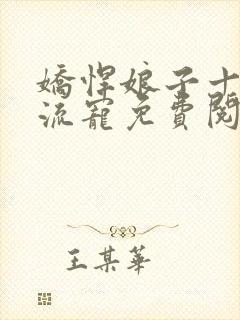 嬌悍娘子十
流寵免費閱
王某華